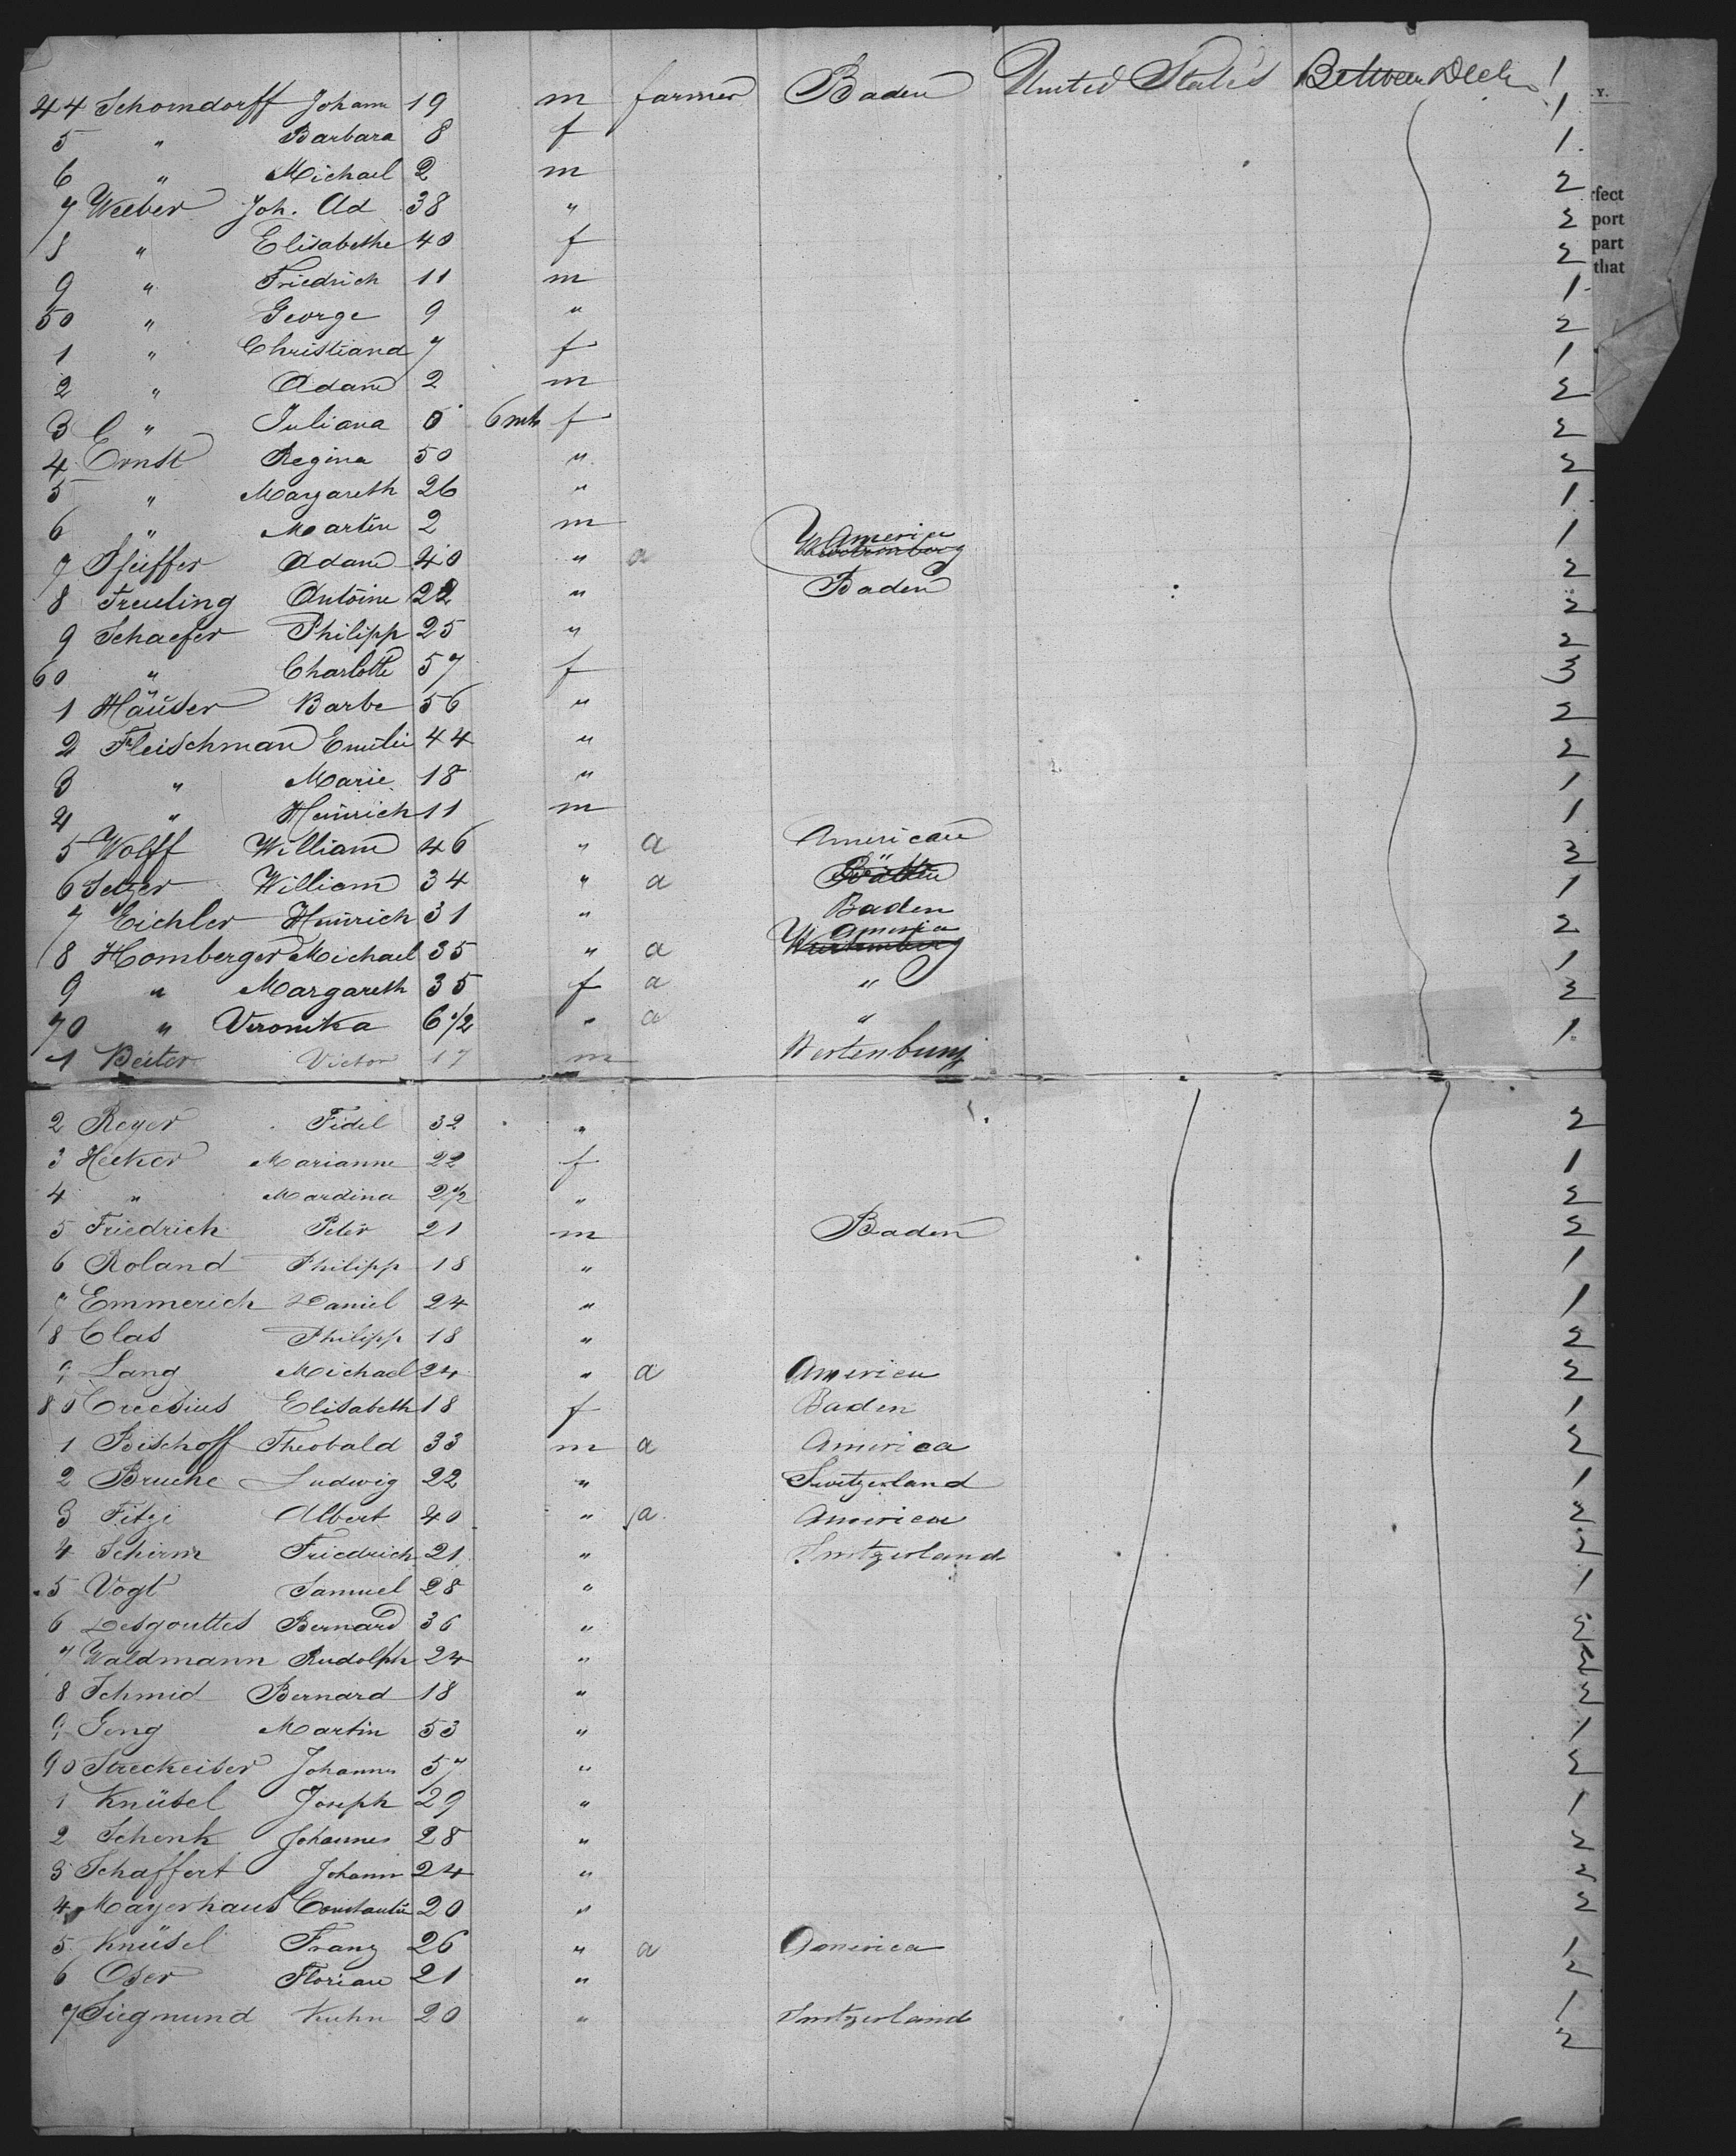 44 Schorndorff Johann 19 m farmer Baden United States Between Deck 1
5 " Barbara 8 f 1
6 " Michael 2 m 1
7 Weeber Joh. Ad 38 " 2
8 " Elisabethe 40 f 2
9 " Friedrich 11 m 2
50 " George 9 " 1
1 " Christiana 7 f 2
2 " Adam 2 m 1
3 " Juliana 0 6 mts f 2
4 Ernst Regina 50 " 2
5 " Margareth 26 " 2
6 " Martin 2 m 1
7 Pfeiffer Adam 40 " a America 1
8 Freuling Antoine 22 " Baden 2
9 Schaefer Philipp 25 " 2
60 " Charlotte 57 f 2
1 Häuser Barbe 56 " 3
2 Fleischman Emilie 44 " 2
3 " Marie 18 " 2
4 " Heinrich 11 m 1
5 Wolff William 46 " a American 1
6 Setzer William 34 " a " 3
7 Eichler Heinrich 31 " Baden 1
8 Homberger Michael 35 " a America Wurtemberg 2
9 " Margareth 35 f a " 1
70 " Veronika 6 1/2 " a " 2
1 Beiter Victor 17 m Wertenburg 1
2 Reyer Fidel 32 " 2
3 Hecker Marianne 22 f 1
4 " Mardina 2 1/2 " 2
5 Friedrich Peter 21 m Baden 2
6 Roland Philipp 18 " 1
7 Emmerich Daniel 24 " 1
8 Clas Philipp 18 " 2
9 Lang Michael 24 " a America 2
80 Creesius Elisabeth 18 f Baden 1
1 Bischoff Theobald 33 m a America 2
2 Bruche Ludwig 22 " Switzerland 1
3 Fitzi Albert 40 " a America 2
4 Schirm Friedrich 21 " Switzerland 2
5 Vogt Samuel 28 " 1
6 Desgouttes Bernard 36 " 2
7 Waldmann Rudolph 24 " 2
8 Schmid Bernard 18 " 2
9 Geng Martin 53 " 1
90 Streckeiser Johannes 57 " 2
1 Knüsel Joseph 29 " 1
2 Schenk Johannes 28 " 2
3 Schaffert Johann 24 " 2
4 Mayerhaus Constantin 20 " 2
5 Knüsel Franz 26 " a America 1
6 Oser Florian 21 " 2
7 Siegmund Kuhn 20 " Switzerland 1
2
Y.
rfect
port
part
that